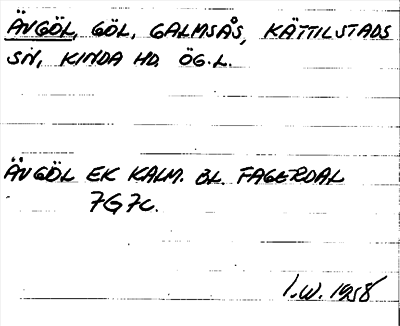 ÄVGÖL, GÖL, GALMSÅS, KÄTTILSTADS
SN, KINDA HD. ÖG.L.
ÄVGÖL EK KALM. BL. FAGERDAL
7G7c.
I.W. 1958